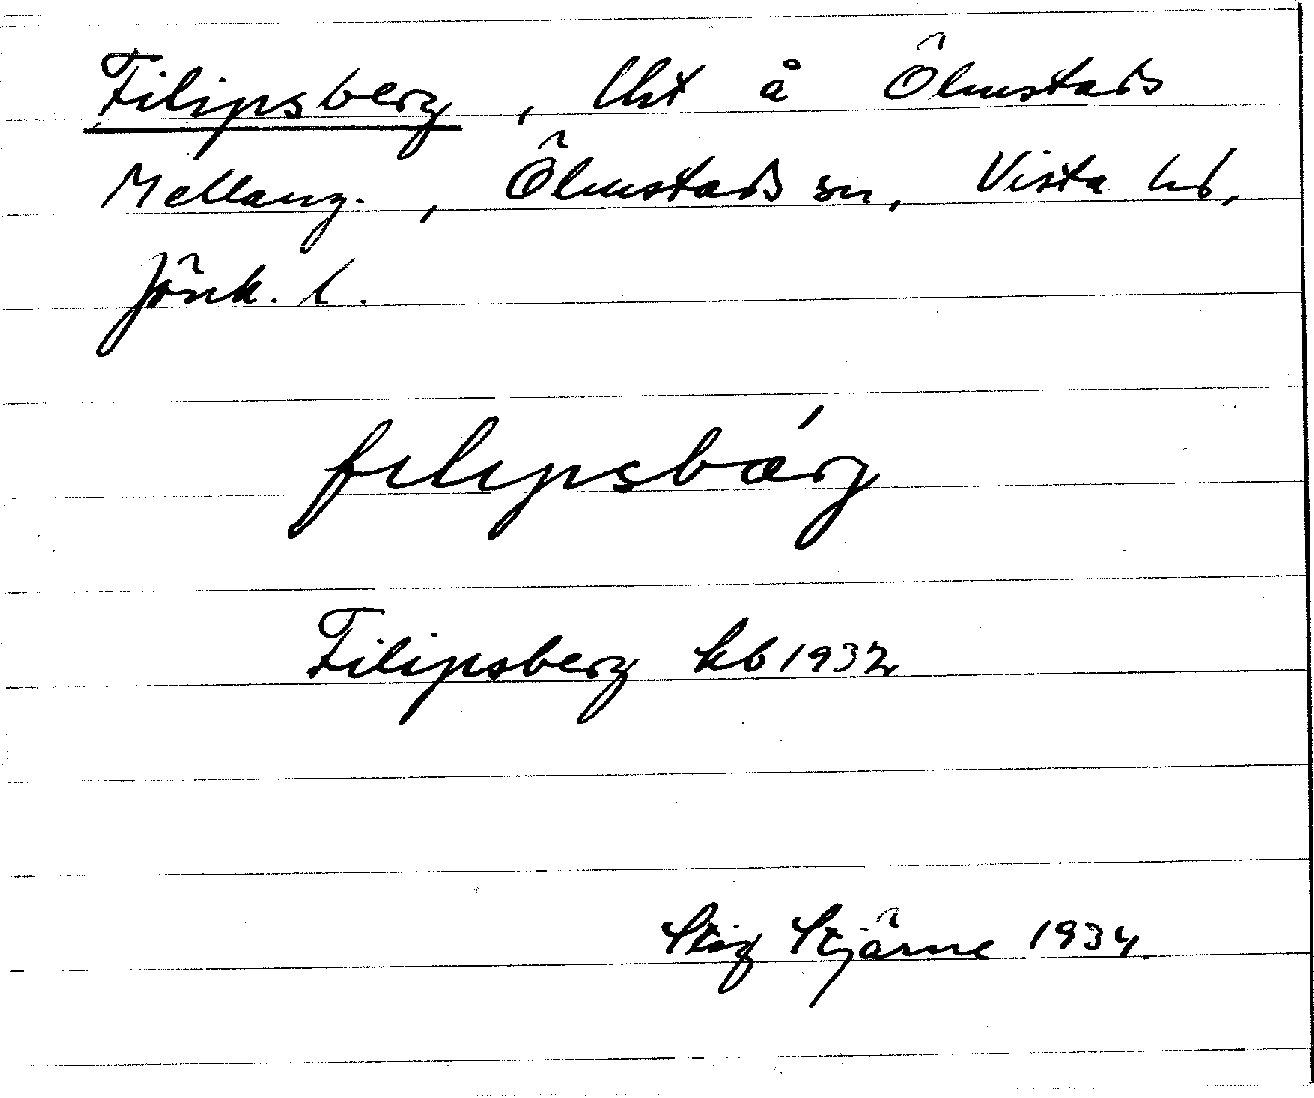 Filipsberg, lht å Ölmstads
Mellang., Ölmstads sn, Vista hd,
Jönk. l.
filipsbærg
Filipsberg kb 1932
Stig Stjärne 1934.